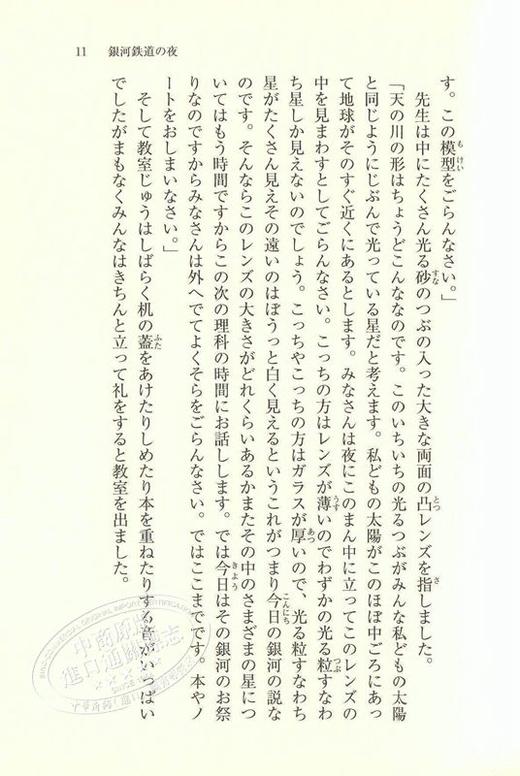 11 銀河鉄道の夜
す。この模型をごらんなさい。」
先生は中にたくさん光る砂のつぶの入った大きな両面の凸レンズを指しました。
「天の川の形はちょうどこんななのです。このいちいちの光るつぶがみんな私どもの太陽
と同じようにじぶんで光っている星だと考えます。私どもの太陽がこのほぼ中ごろにあっ
て地球がそのすぐ近くにあるとします。みなさんは夜にこのまん中に立ってこのレンズの
中を見まわすとしてごらんなさい。こっちの方はレンズが薄いのでわずかの光る粒すなわ
ち星しか見えないのでしょう。こっちやこっちの方はガラスが厚いので、光る粒すなわち
星がたくさん見えその遠いのはぼうっと白く見えるというこれがつまり今日の銀河の説な
のです。そんならこのレンズの大きさがどれくらいあるかまたその中のさまざまの星につ
いてはもう時間ですからこの次の理科の時間にお話しします。では今日はその銀河のお祭
りなのですからみなさんは外へでてよくそらをごらんなさい。ではここまでです。本やノ
ートをおしまいなさい。」
そして教室じゅうはしばらく机の蓋をあけたりしめたり本を重ねたりする音がいっぱい
でしたがまもなくみんなはきちんと立って礼をすると教室を出ました。